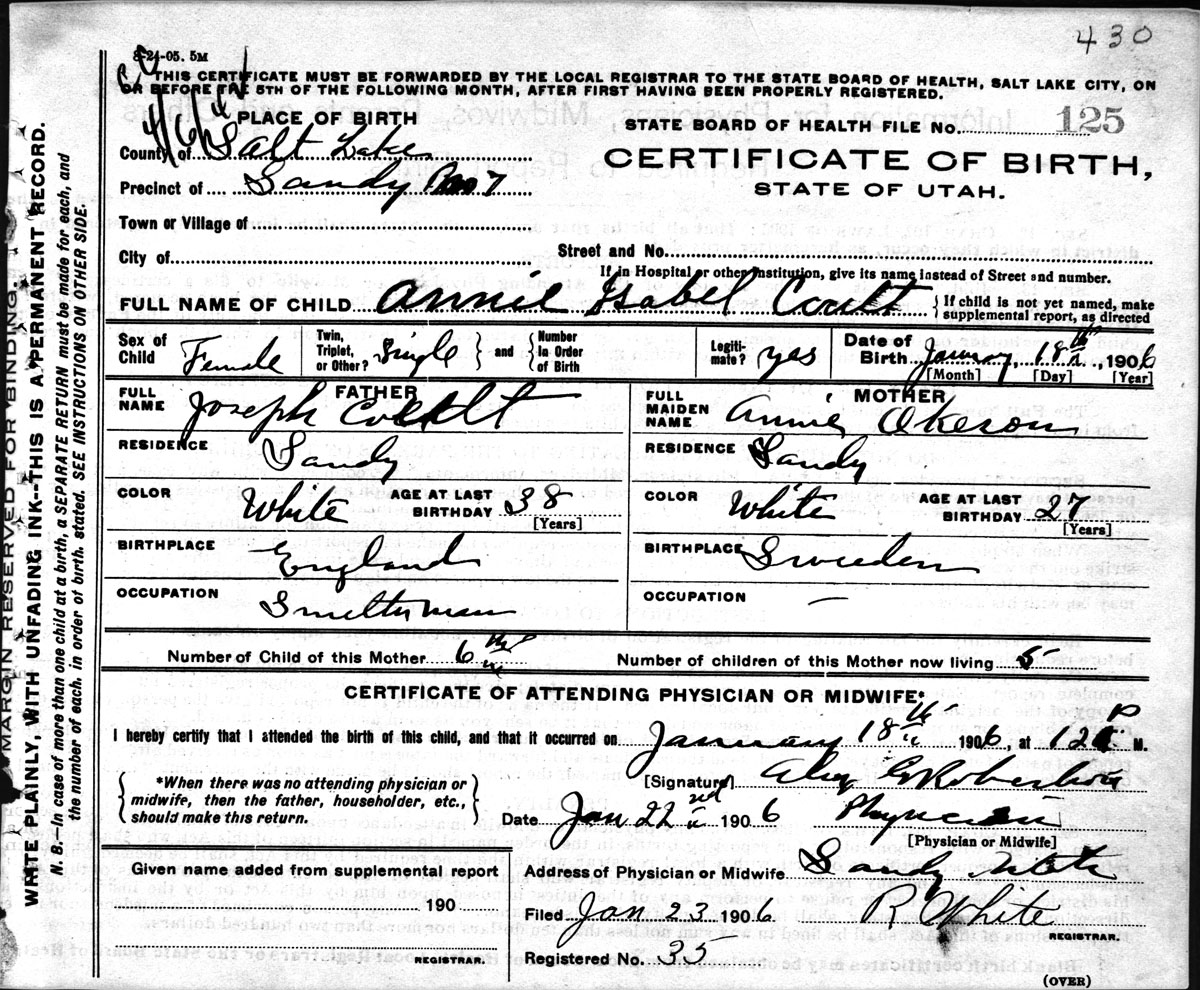 430
8-24-05. 5M
THIS CERTIFICATE MUST BE FORWARDED BY THE LOCAL REGISTRAR TO THE STATE BOARD OF HEALTH, SALT LAKE CITY, ON
OR BEFORE THE 5TH OF THE FOLLOWING MONTH, AFTER FIRST HAVING BEEN PROPERLY REGISTERED.
PLACE OF BIRTH
STATE BOARD OF HEALTH FILE No. 125
County of Salt Lake
CERTIFICATE OF BIRTH,
STATE OF UTAH.
Precinct of Sandy 7
Town or Village of
City of
Street and No.
If in Hospital or other Institution, give its name instead of Street and number.
FULL NAME OF CHILD Annie Isabel Coult
If child is not yet named, make
supplemental report, as directed
Sex of
Child Female
Twin,
Triplet,
or Other? Single
and
Number
in Order
of Birth
Legiti-
mate? yes
Date of
Birth January 18th, 1906
[Month] [Day] [Year]
FATHER
FULL
NAME Joseph Coult
MOTHER
FULL
MAIDEN
NAME Annie Okeson
RESIDENCE Sandy
RESIDENCE Sandy
COLOR White AGE AT LAST
BIRTHDAY 38
[Years]
COLOR White AGE AT LAST
BIRTHDAY 27
[Years]
BIRTHPLACE England
BIRTHPLACE Sweden
OCCUPATION Smelterman
OCCUPATION –
Number of Child of this Mother 6th
Number of children of this Mother now living 5
CERTIFICATE OF ATTENDING PHYSICIAN OR MIDWIFE*
I hereby certify that I attended the birth of this child, and that it occurred on January 18th 1906, at 12 P M.
*When there was no attending physician or
midwife, then the father, householder, etc.,
should make this return.
[Signature] Alex G Robertson
Date Jan 22nd 1906 Physician
[Physician or Midwife]
Address of Physician or Midwife Sandy Utah
Given name added from supplemental report
190
REGISTRAR.
Filed Jan 25 1906 R White
REGISTRAR.
Registered No. 35
(OVER)
MARGIN RESERVED FOR BINDING.
WRITE PLAINLY, WITH UNFADING INK--THIS IS A PERMANENT RECORD.
N. B.–In case of more than one child at a birth, a SEPARATE RETURN must be made for each, and
the number of each, in order of birth, stated. SEE INSTRUCTIONS ON OTHER SIDE.